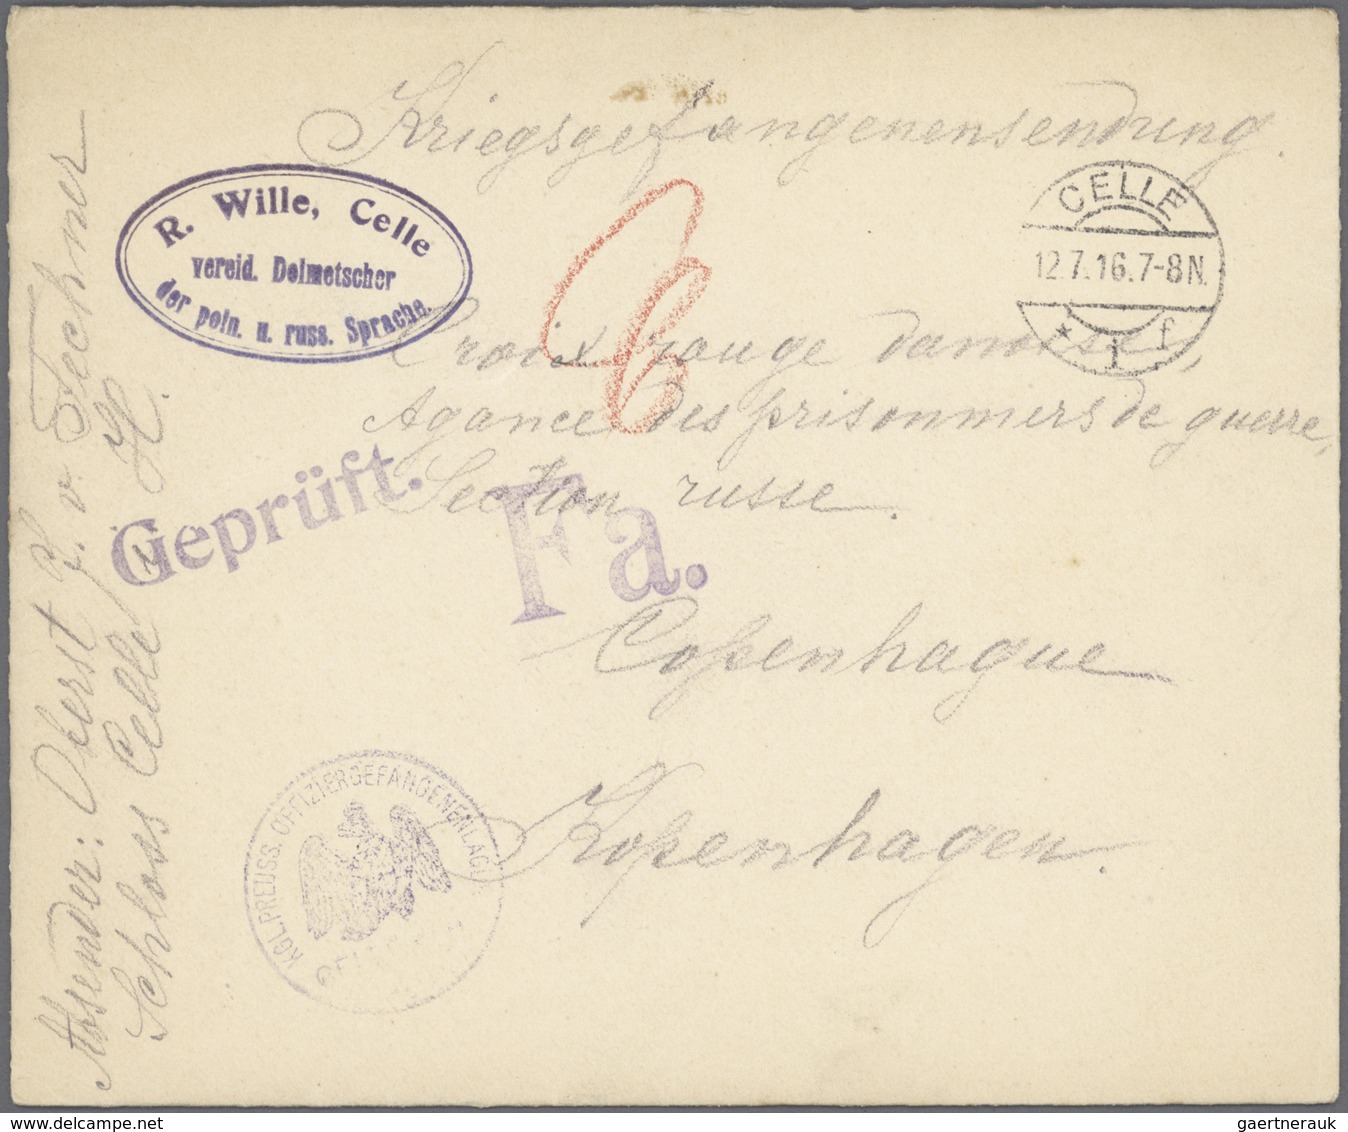 Kriegsgefangenensendung.
R. Wille, Celle
vereid. Dolmetscher
der poln. u. russ. Sprache.
CELLE
12.7.16.7-8N.
* 1 f
Croix rouge danoise,
Agance des prisonniers de guerre,
Section russe.
Geprüft.
Fa.
Copenhague
Kopenhagen.
KGL. PREUSS. OFFIZIERGEFANGENENLAG
Absender: Oberst J. v. Fechner
Schloss Celle i/H.
delcampe.net
gaertnerauk